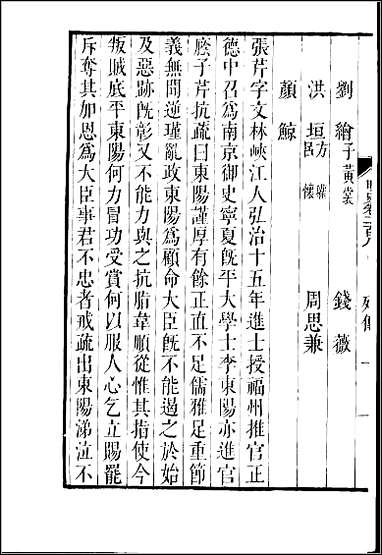 劉繪子黃裳 錢薇
洪垣方瓘 呂懷 周思兼
顏鯨
張芹字文林峽江人弘治十五年進士授福州推官正
德中召爲南京御史寧夏旣平大學士李東陽亦進官
廕子芹抗疏曰東陽謹厚有餘正直不足儒雅足重節
義無聞逆瑾亂政東陽爲顧命大臣旣不能遏之於始
及惡跡旣彰又不能力與之抗脂韋順從惟其指使今
叛賊底平東陽何力冒功受賞何以服人心乞立賜罷
斥奪其加恩爲大臣事君不忠者戒疏出東陽涕泣不